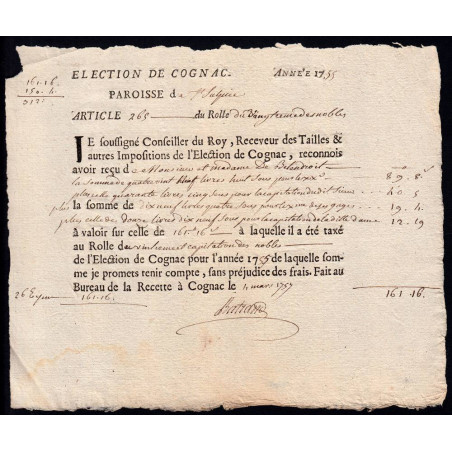 161.16.
ELECTION DE COGNAC. ANNÉE 1755
PAROISSE de St Sulpice
ARTICLE 265 du Rolle du vingtieme des nobles
JE soussigné Conseiller du Roy, Receveur des Tailles &
autres Impositions de l'Election de Cognac, reconnois
avoir reçu de Monsieur et madame De
la somme de quatre vingt neuf livres huit sous pour le xxe 89. 8s
plus celle quarante livres cinq sous pour la capitation dudit sieur 40. 5
la somme de dix neuf livres quatre sous pour le xxe de ses gages 19. 4
plus celle de douze livres dix neuf sous pour la capitation de la ditte dame 12. 19
à valoir sur celle de 161lt 16s à laquelle il a été taxé
au Rolle du vintieme et capitation des nobles
de l'Election de Cognac pour l'année 1755 de laquelle som-
me je promets tenir compte, sans préjudice des frais. Fait au
Bureau de la Recette à Cognac le 4 mars 1757
161.16. 161.16.